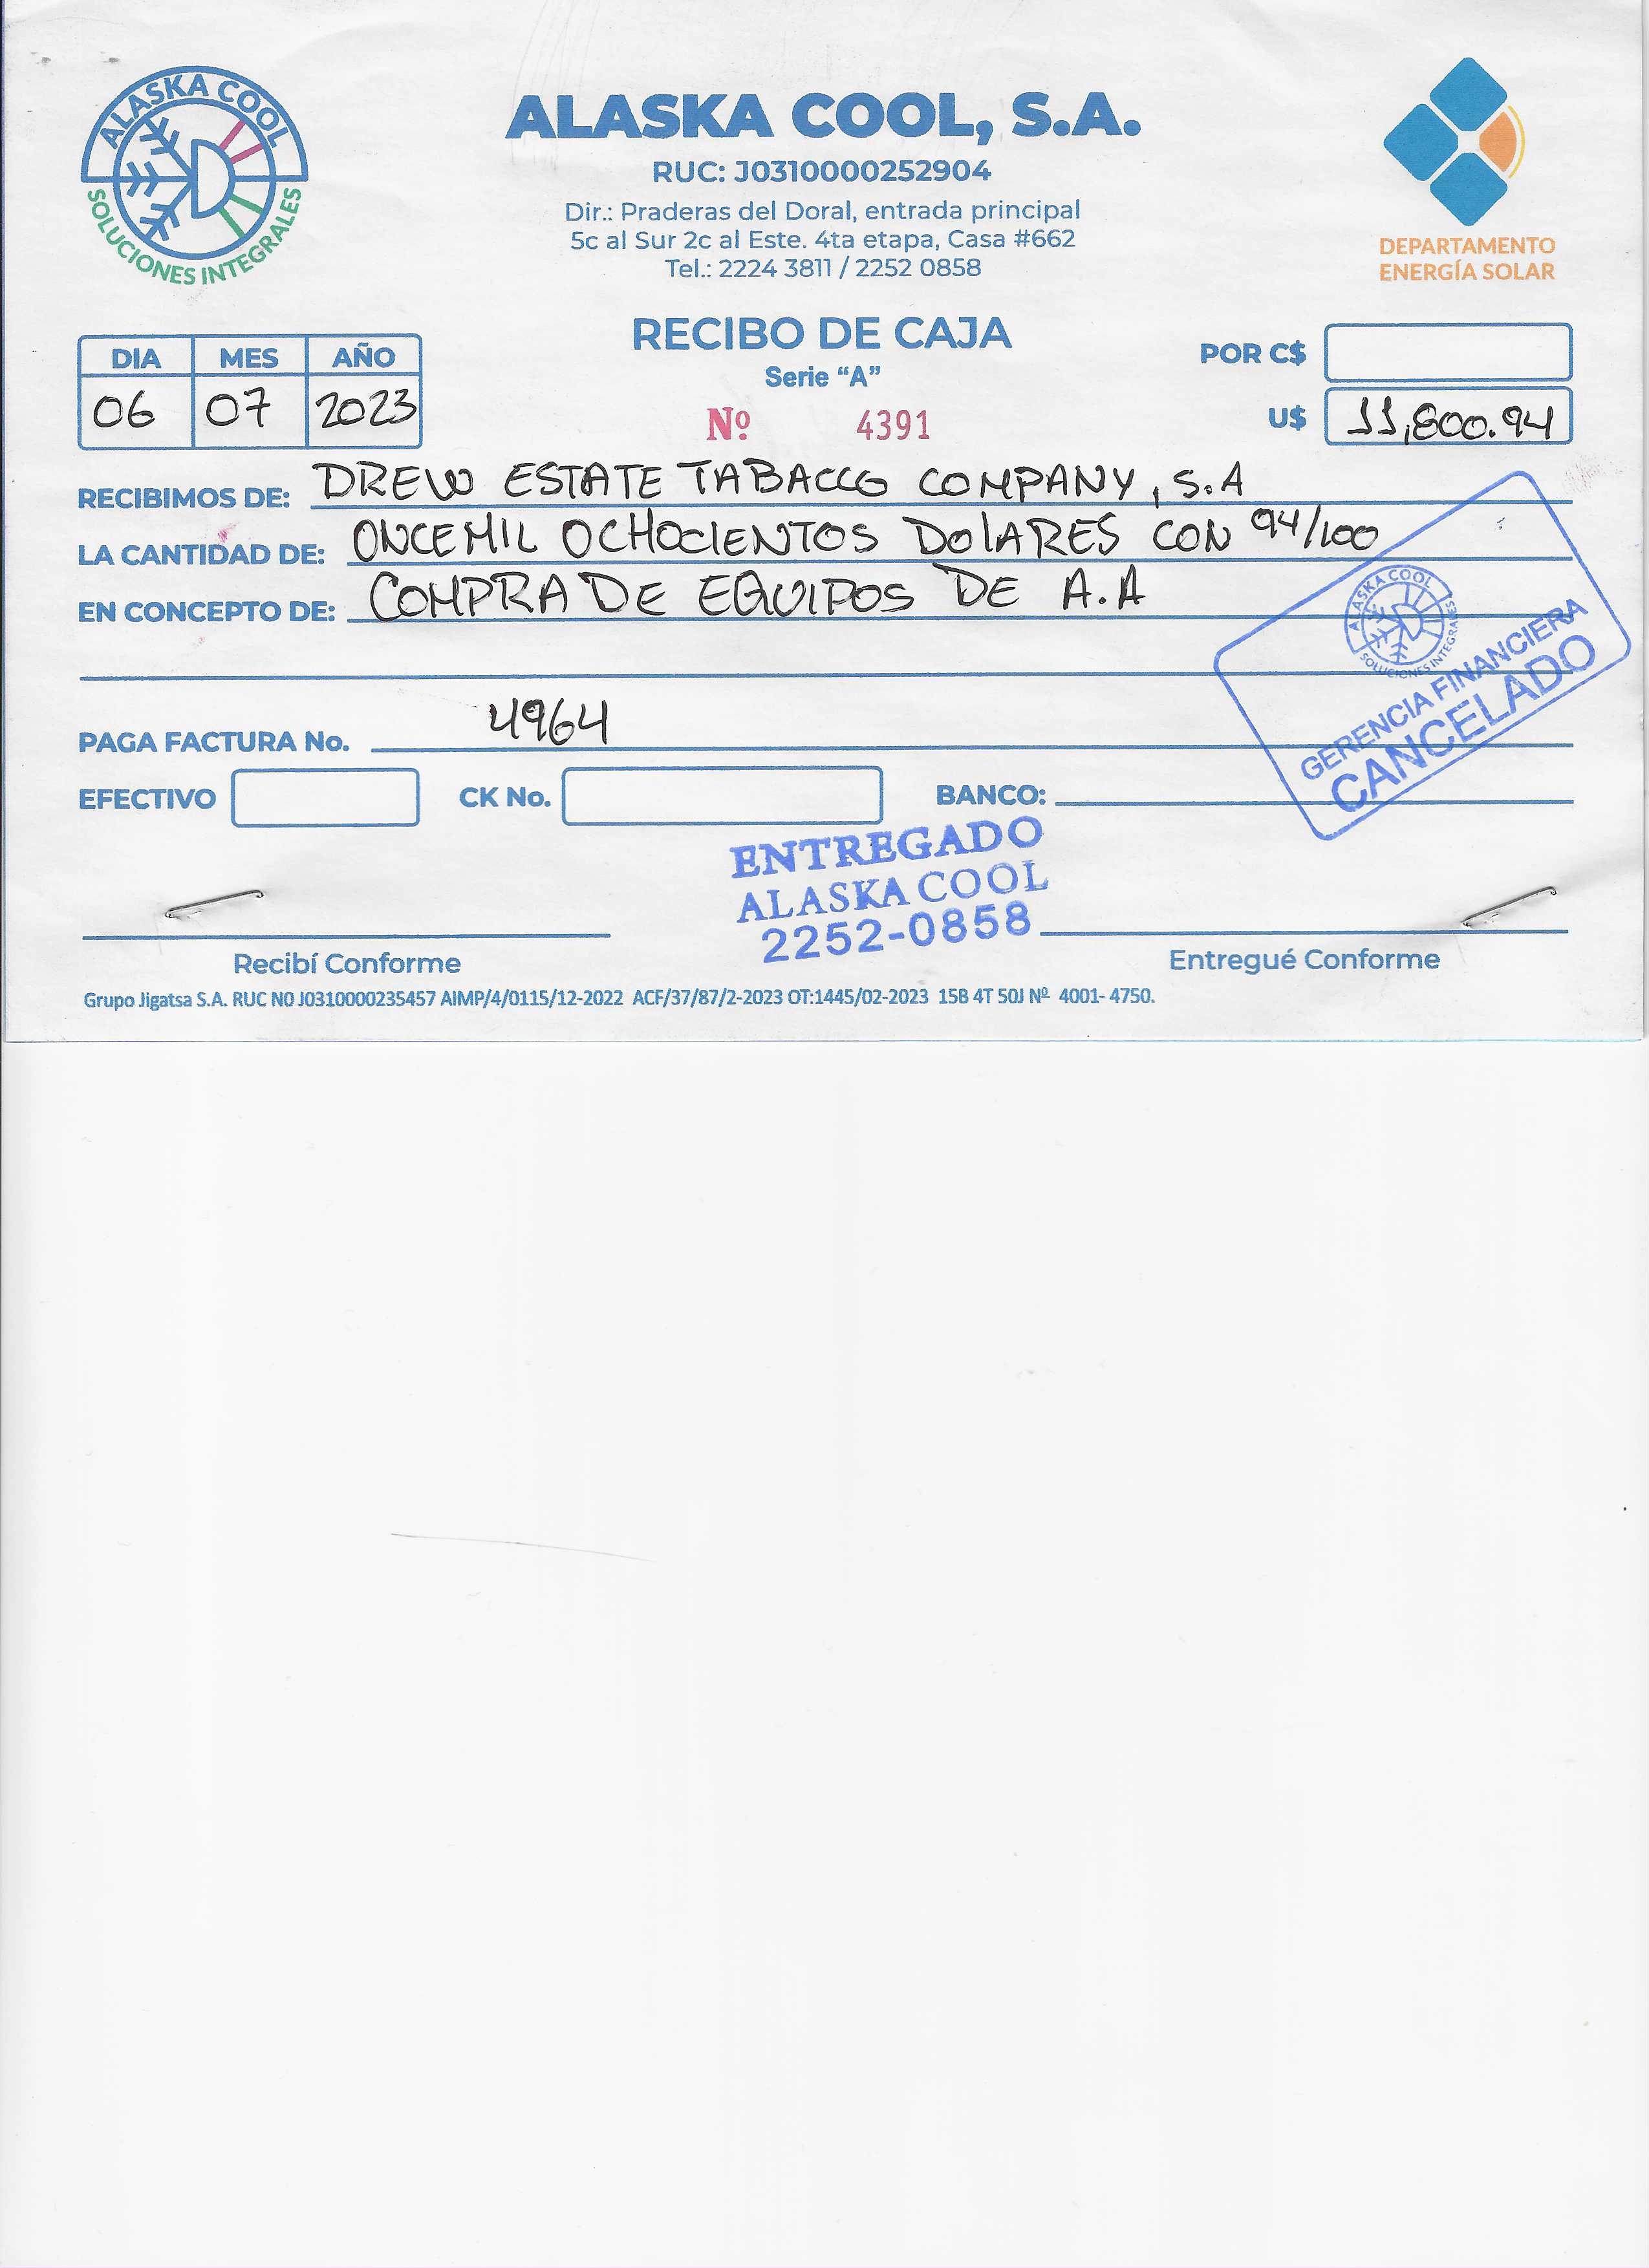 ALASKA COOL
SOLUCIONES INTEGRALES
ALASKA COOL, S.A.
RUC: J0310000252904
Dir.: Praderas del Doral, entrada principal
5c al Sur 2c al Este. 4ta etapa, Casa #662
Tel.: 2224 3811 / 2252 0858
DEPARTAMENTO
ENERGÍA SOLAR
RECIBO DE CAJA
Serie “A”
Nº 4391
DIA MES AÑO
06 07 2023
POR C$
U$ 11,800.94
RECIBIMOS DE: DREW ESTATE TABACCO COMPANY, S.A
LA CANTIDAD DE: ONCEMIL OCHOCIENTOS DOLARES CON 94/100
EN CONCEPTO DE: COMPRA DE EQUIPOS DE A.A
ALASKA COOL
SOLUCIONES INTEGRALES
GERENCIA FINANCIERA
CANCELADO
PAGA FACTURA No. 4964
EFECTIVO CK No. BANCO:
ENTREGADO
ALASKA COOL
2252-0858
Recibí Conforme Entregué Conforme
Grupo Jigatsa S.A. RUC N0 J0310000235457 AIMP/4/0115/12-2022 ACF/37/87/2-2023 OT:1445/02-2023 15B 4T 50J Nº 4001- 4750.